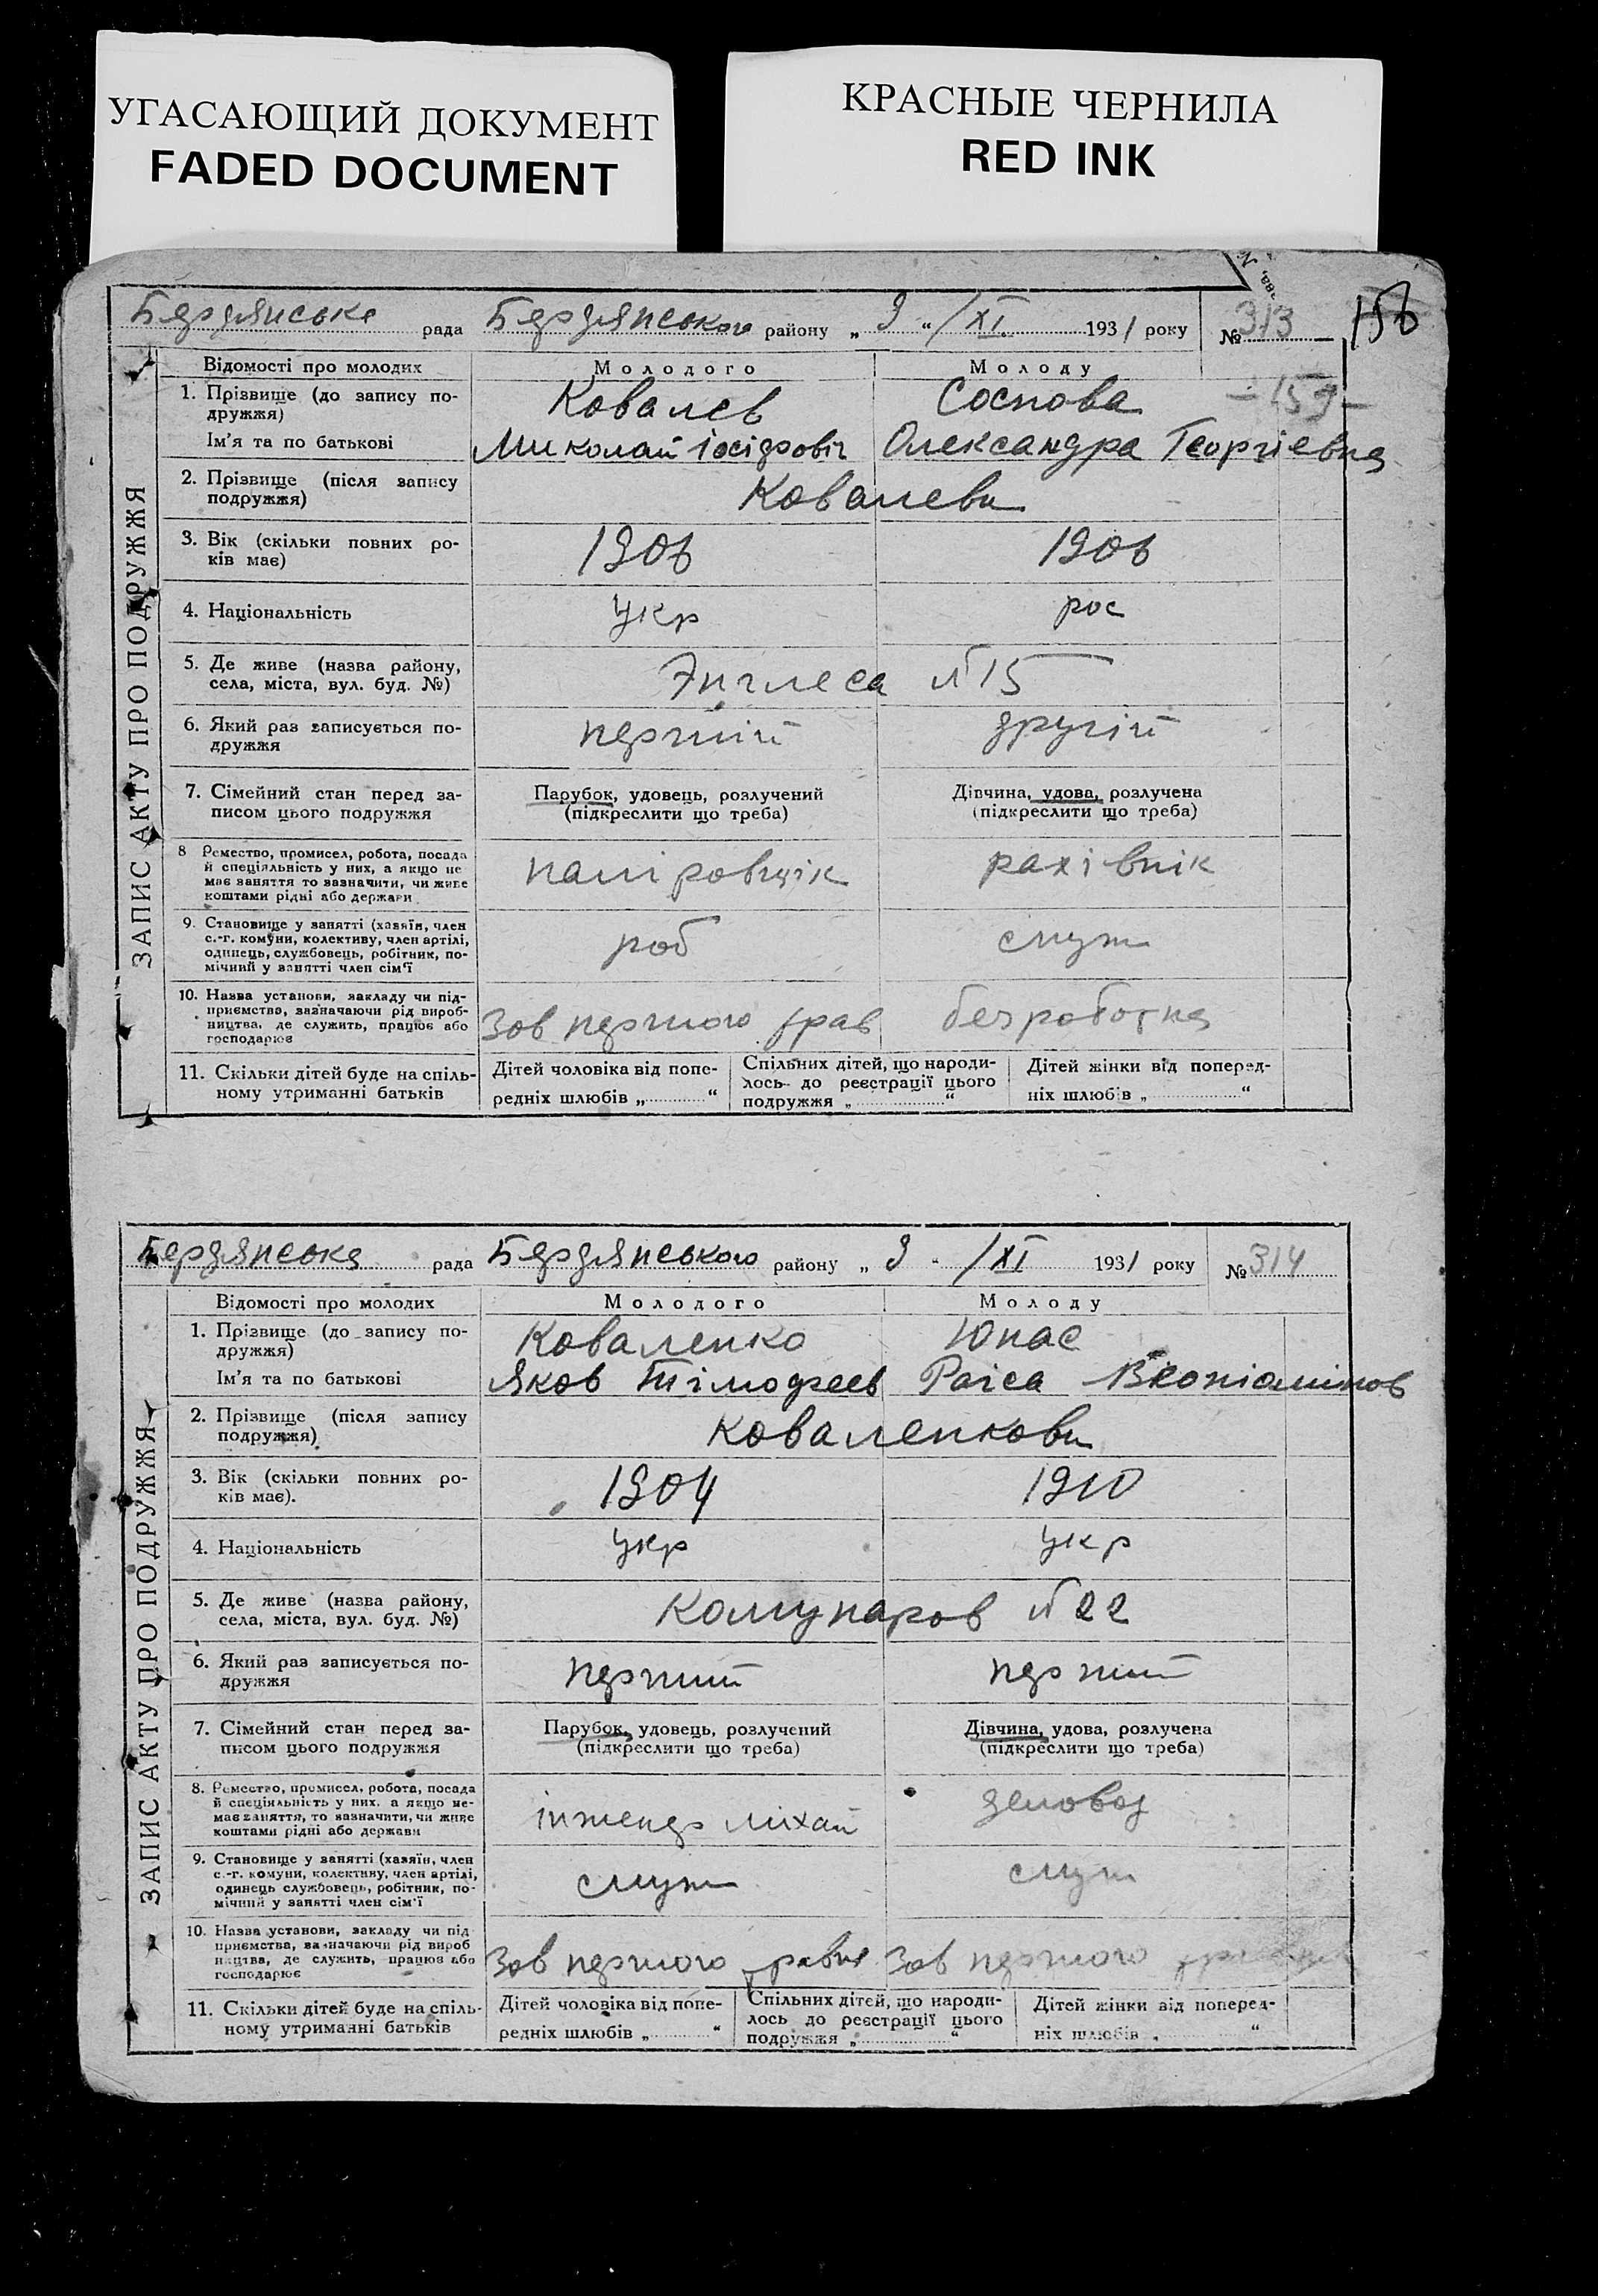 УГАСАЮЩИЙ ДОКУМЕНТ
FADED DOCUMENT
КРАСНЫЕ ЧЕРНИЛА
RED INK
158
Бердянська рада Бердянського району „ 3 “ /XI 1931 року № 313
ЗАПИС АКТУ ПРО ПОДРУЖЖЯ
Відомості про молодих Молодого Молоду
1. Прізвище (до запису по-
дружжя) Ковалев Соснова – 159 –
Ім'я та по батькові Миколай Іосіфовіч Олександра Георгіевна
2. Прізвище (після запису
подружжя) Ковалеви
3. Вік (скільки повних ро-
ків має) 1906 1906
4. Національність укр рос
5. Де живе (назва району,
села, міста, вул. буд. №) Энглеса № 15
6. Який раз записується по-
дружжя першій другій
7. Сімейний стан перед за- Парубок, удовець, розлучений Дівчина, удова, розлучена
писом цього подружжя (підкреслити що треба) (підкреслити що треба)
8 Ремество, промисел, робота, посада
й спеціяльність у них, а якщо не
має заняття то зазначити, чи живе
коштами рідні або держави рахівнік
9. Становище у занятті (хазяїн, член
с.-г. комуни, колективу, член артілі,
одинець, службовець, робітник, по-
мічний у занятті член сім'ї роб служ
10. Назва установи, закладу чи під-
приємства, зазначаючи рід вироб-
ництва, де служить, працює або
господарює Зав першого трав безработна
11. Скільки дітей буде на спіль- Дітей чоловіка від попе- Спільних дітей, що народи- Дітей жінки від поперед-
ному утриманні батьків редніх шлюбів „ “ лось до реєстрації цього ніх шлюбів „ “
подружжя „ “
Бердянська рада Бердянського району „ 3 “ /XI 1931 року № 314
ЗАПИС АКТУ ПРО ПОДРУЖЖЯ
Відомості про молодих Молодого Молоду
1. Прізвище (до запису по-
дружжя) Коваленко Юнас
Ім'я та по батькові Яков Тімофеев Раіса Веоніамінов
2. Прізвище (після запису
подружжя) Коваленкови
3. Вік (скільки повних ро-
ків має). 1904 1910
4. Національність укр укр
5. Де живе (назва району,
села, міста, вул. буд. №) Комунаров № 22
6. Який раз записується по-
дружжя перший перший
7. Сімейний стан перед за- Парубок, удовець, розлучений Дівчина, удова, розлучена
писом цього подружжя (підкреслити що треба) (підкреслити що треба)
8. Ремество, промисел, робота, посада
й спеціяльність у них, а якщо не-
має заняття, то зазначити, чи живе
коштами рідні або держави інженер міхан діловод
9. Становище у занятті (хазяїн, член
с.-г. комуни, колективу, член артілі,
одинець службовець, робітник, по-
мічний у занятті член сім'ї служ служ
10. Назва установи, закладу чи під
приємства, зазначаючи рід вироб
ництва, де служить, працює або
господарює Зав першого травня Зав першого
11. Скільки дітей буде на спіль- Дітей чоловіка від попе- Спільних дітей, що народи- Дітей жінки від поперед-
ному утриманні батьків редніх шлюбів „ “ лось до реєстрації цього ніх шлюбів „ “
подружжя „ “